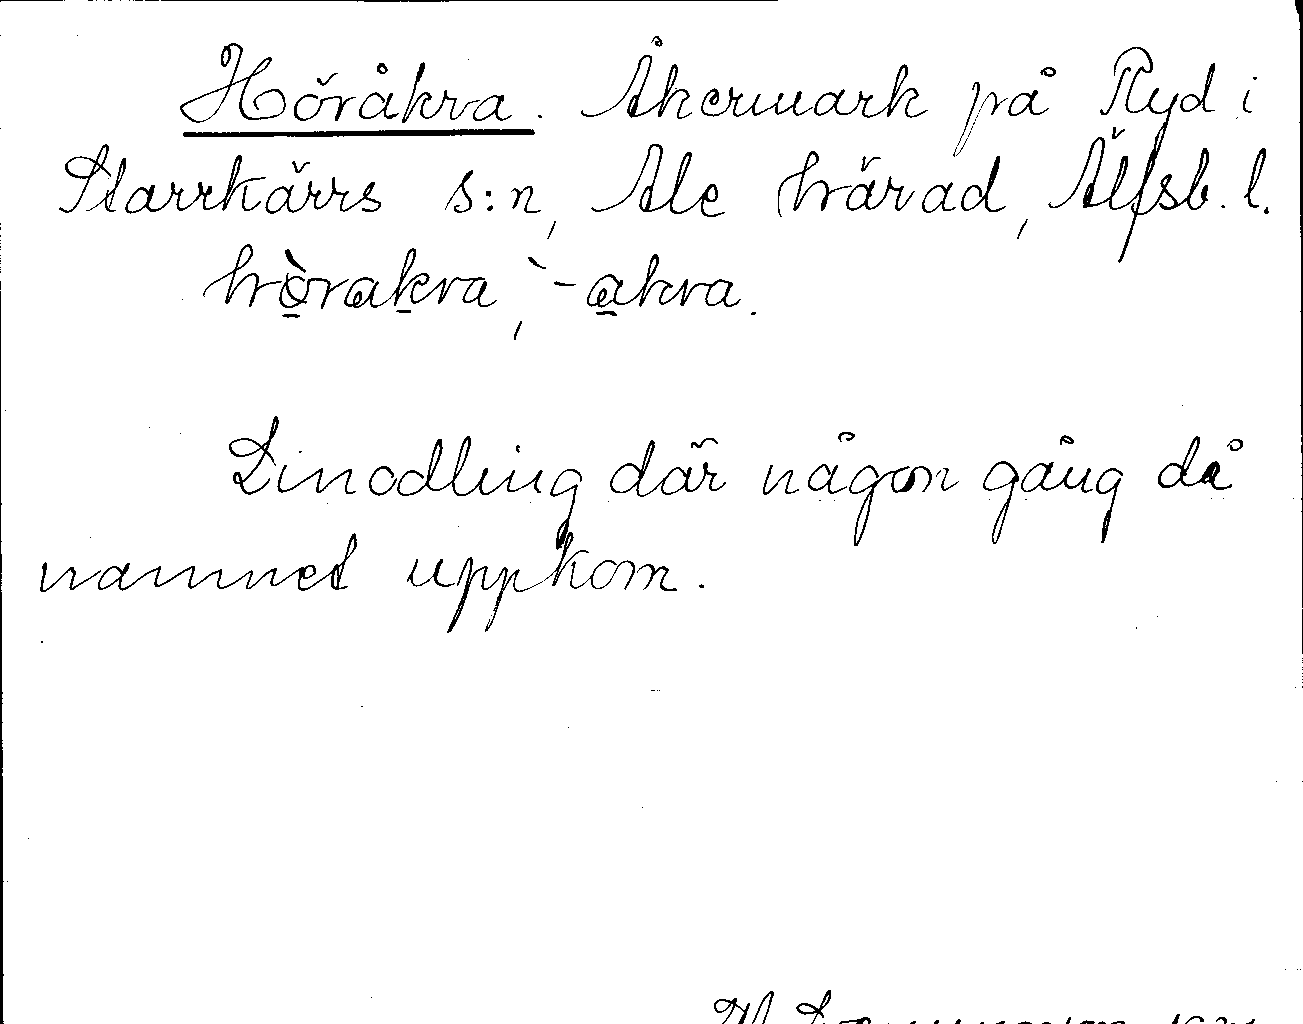 Höråkra. Åkermark på Ryd i
Starrkärrs s:n, Ale härad, Älfsb. l.
hòrakra, `-akra.
Linodling där någon gång då
namnet uppkom.